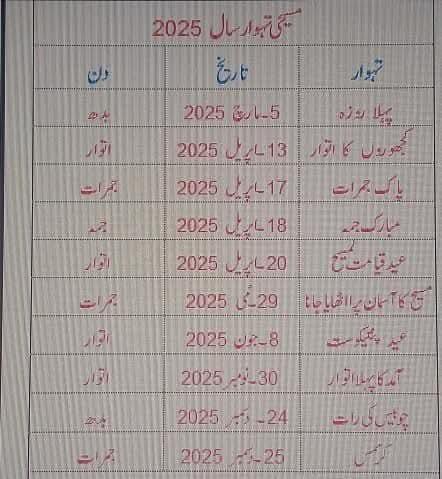 مسیحی تہوار سال 2025
تہوار تاریخ دن
پہلا روزہ 5۔مارچ 2025 بدھ
کھجوروں کا اتوار 13۔اپریل 2025 اتوار
پاک جمرات 17۔اپریل 2025 جمرات
مبارک جمہ 18۔اپریل 2025 جمہ
عید قیامت المسیح 20۔اپریل 2025 اتوار
مسیح کا آسمان پر اٹھایا جانا 29۔مئی 2025 جمرات
عید پینتیکوست 8۔جون 2025 اتوار
آمد کا پہلا اتوار 30۔نومبر 2025 اتوار
چوبیس کی رات 24۔ دسمبر 2025 بدھ
کرسمس 25۔دسمبر 2025 جمرات